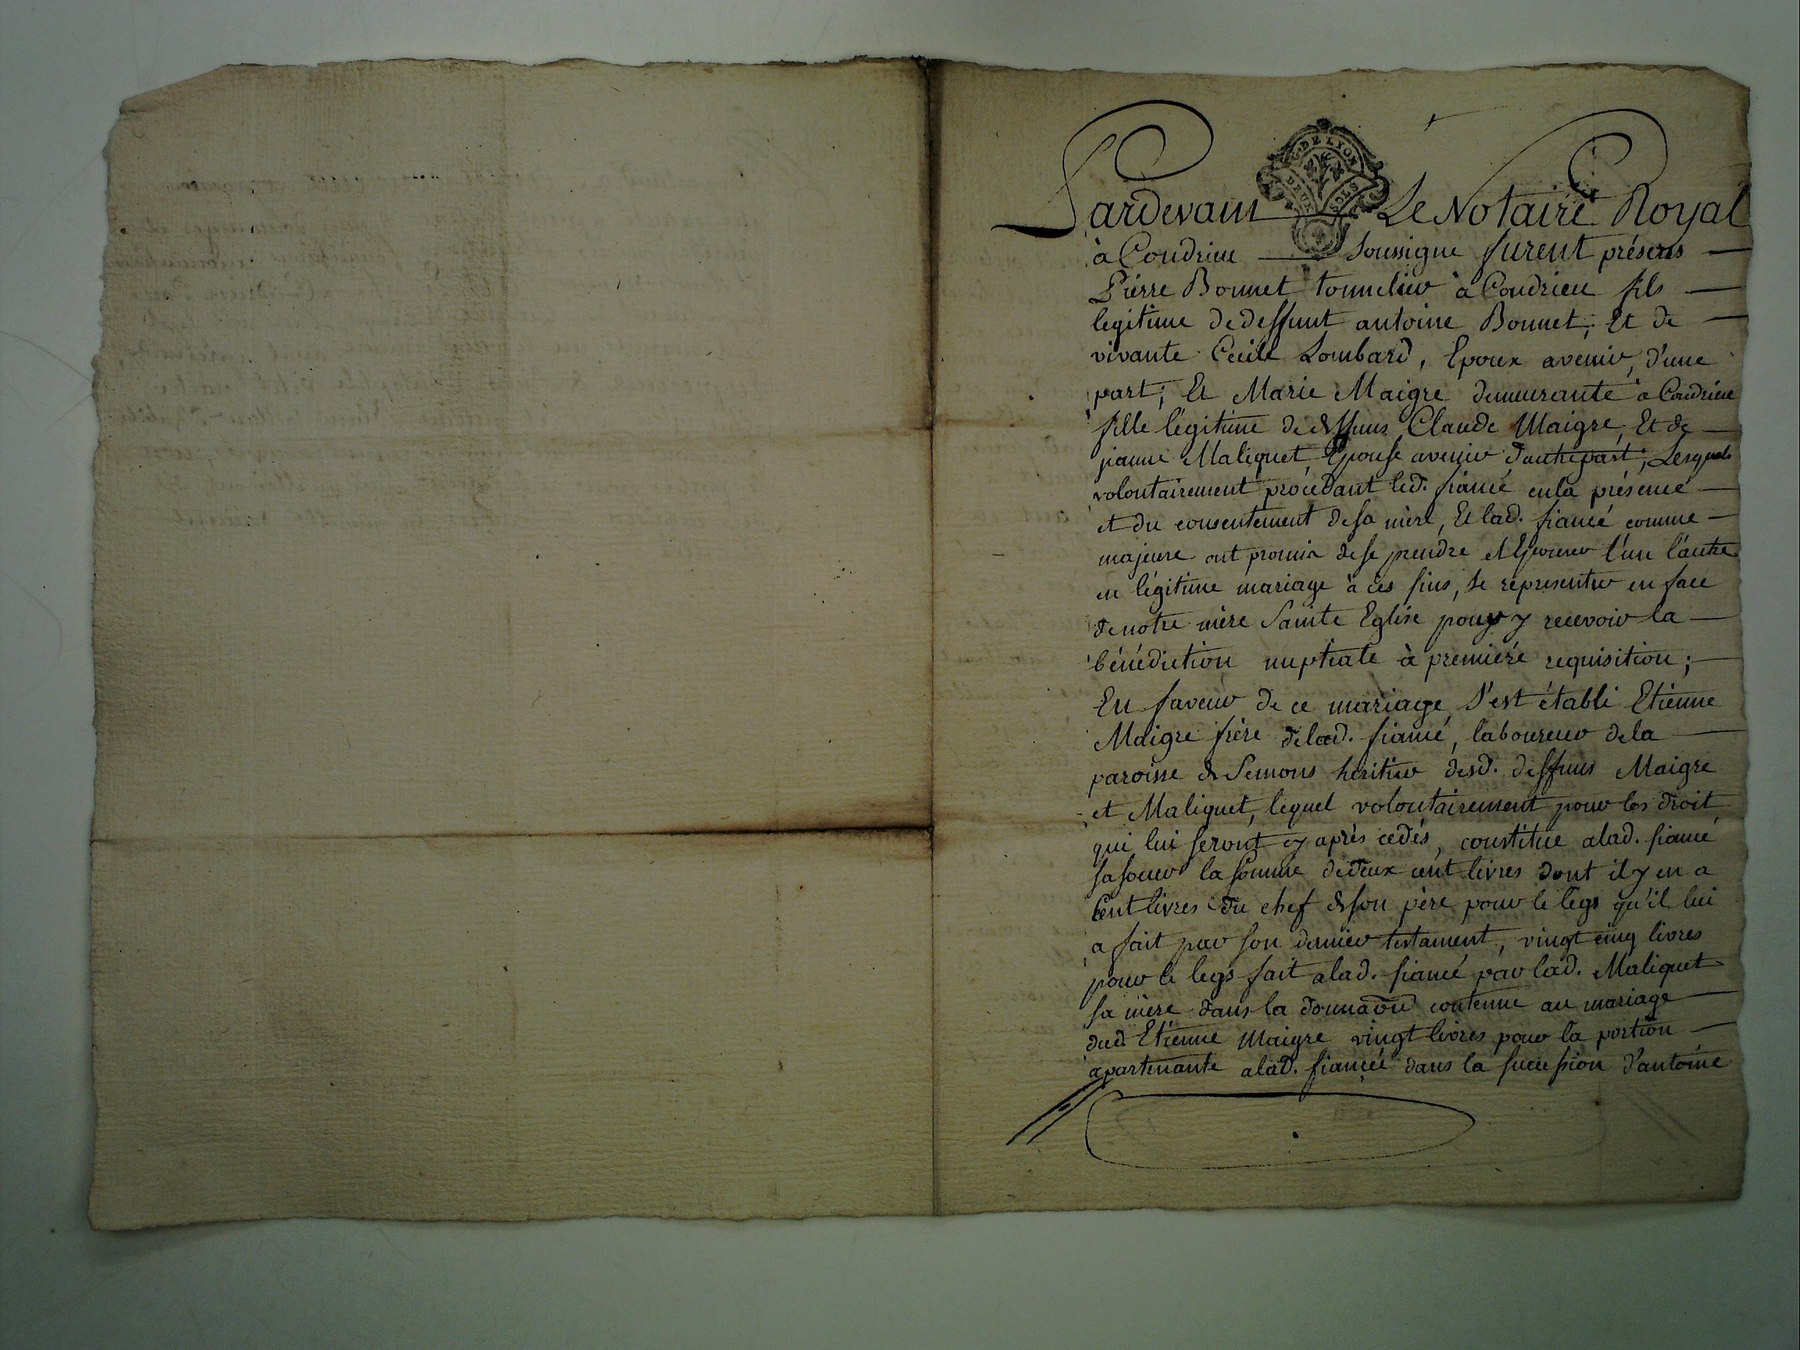 G. DE LYON
DEUX SOLS
Pardevant Le Notaire Royal
à Condrieu soussigné furent présens
Pierre Bonnet tonnelier à Condrieu fils
legitime de deffunt antoine Bonnet, Et de
vivante Cecile Lombard, Epoux avenir, d'une
part; Et Marie Maigre demeurante à Condrieu
fille légitime de deffuns Claude Maigre, Et de
jeanne Maliquet, Epouse avenir d'autre part; Lesquels
volontairement procédant led. fiancé en la présence
et du consentement de sa mère, Et lad. fiancé comme
majeure ont promis de se prendre et Epouser l'un l'autre
en légitime mariage à ces fins, se représenter en face
de notre mère Sainte Eglise pour y recevoir la
bénédiction nuptiale à première requisition;
En faveur de ce mariage, s'est établi Etienne
Maigre frère de lad. fiancé, laboureur de la
paroisse de Semons héritier desd. deffuns Maigre
et Maliquet, lequel volontairement pour les droit
qui lui seront cy après cedés, constitue a lad. fiancé
sa soeur la somme de deux cent livres dont il y en a
Cent livres du chef de son père pour le legs qu'il lui
a fait par son dernier testament, vingt cinq livres
pour le legs fait a lad. fiancé par lad. Maliquet
sa mère dans la donnaôn contenue au mariage
dud. Etienne Maigre vingt livres pour la portion
apartenante a lad. fiancée dans la succession d'antoine